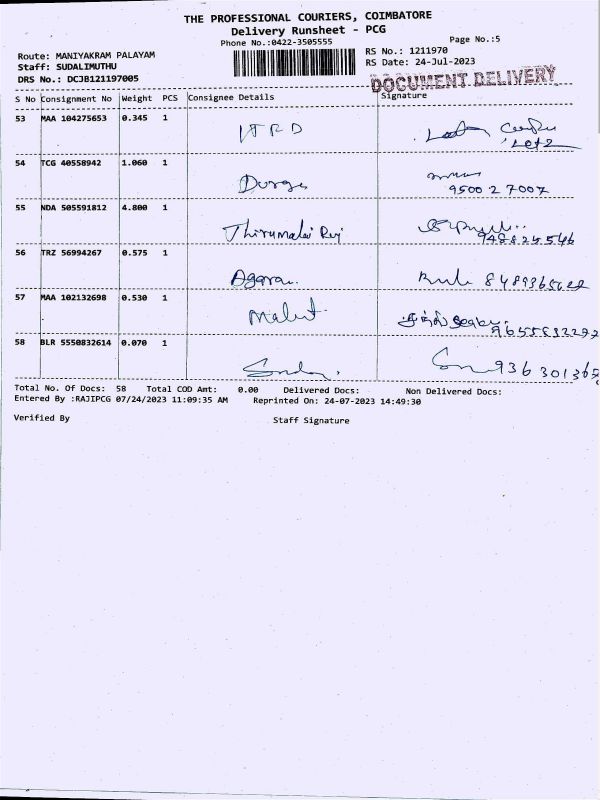 THE PROFESSIONAL COURIERS, COIMBATORE
Delivery Runsheet - PCG
Phone No.:0422-3505555
Page No.:5
Route: MANIYAKRAM PALAYAM
RS No.: 1211970
Staff: SUDALIMUTHU
RS Date: 24-Jul-2023
DRS No.: DCJB121197005
DOCUMENT DELIVERY
S No Consignment No Weight PCS Consignee Details Signature
53 MAA 104275653 0.345 1
54 TCG 40558942 1.060 1 Durga
95002 7007
55 NDA 505591812 4.800 1 Thirumalai
56 TRZ 56994267 0.575 1
57 MAA 102132698 0.530 1
58 BLR 5550832614 0.070 1
Total No. Of Docs: 58 Total COD Amt: 0.00 Delivered Docs: Non Delivered Docs:
Entered By :RAJIPCG 07/24/2023 11:09:35 AM Reprinted On: 24-07-2023 14:49:30
Verified By Staff Signature